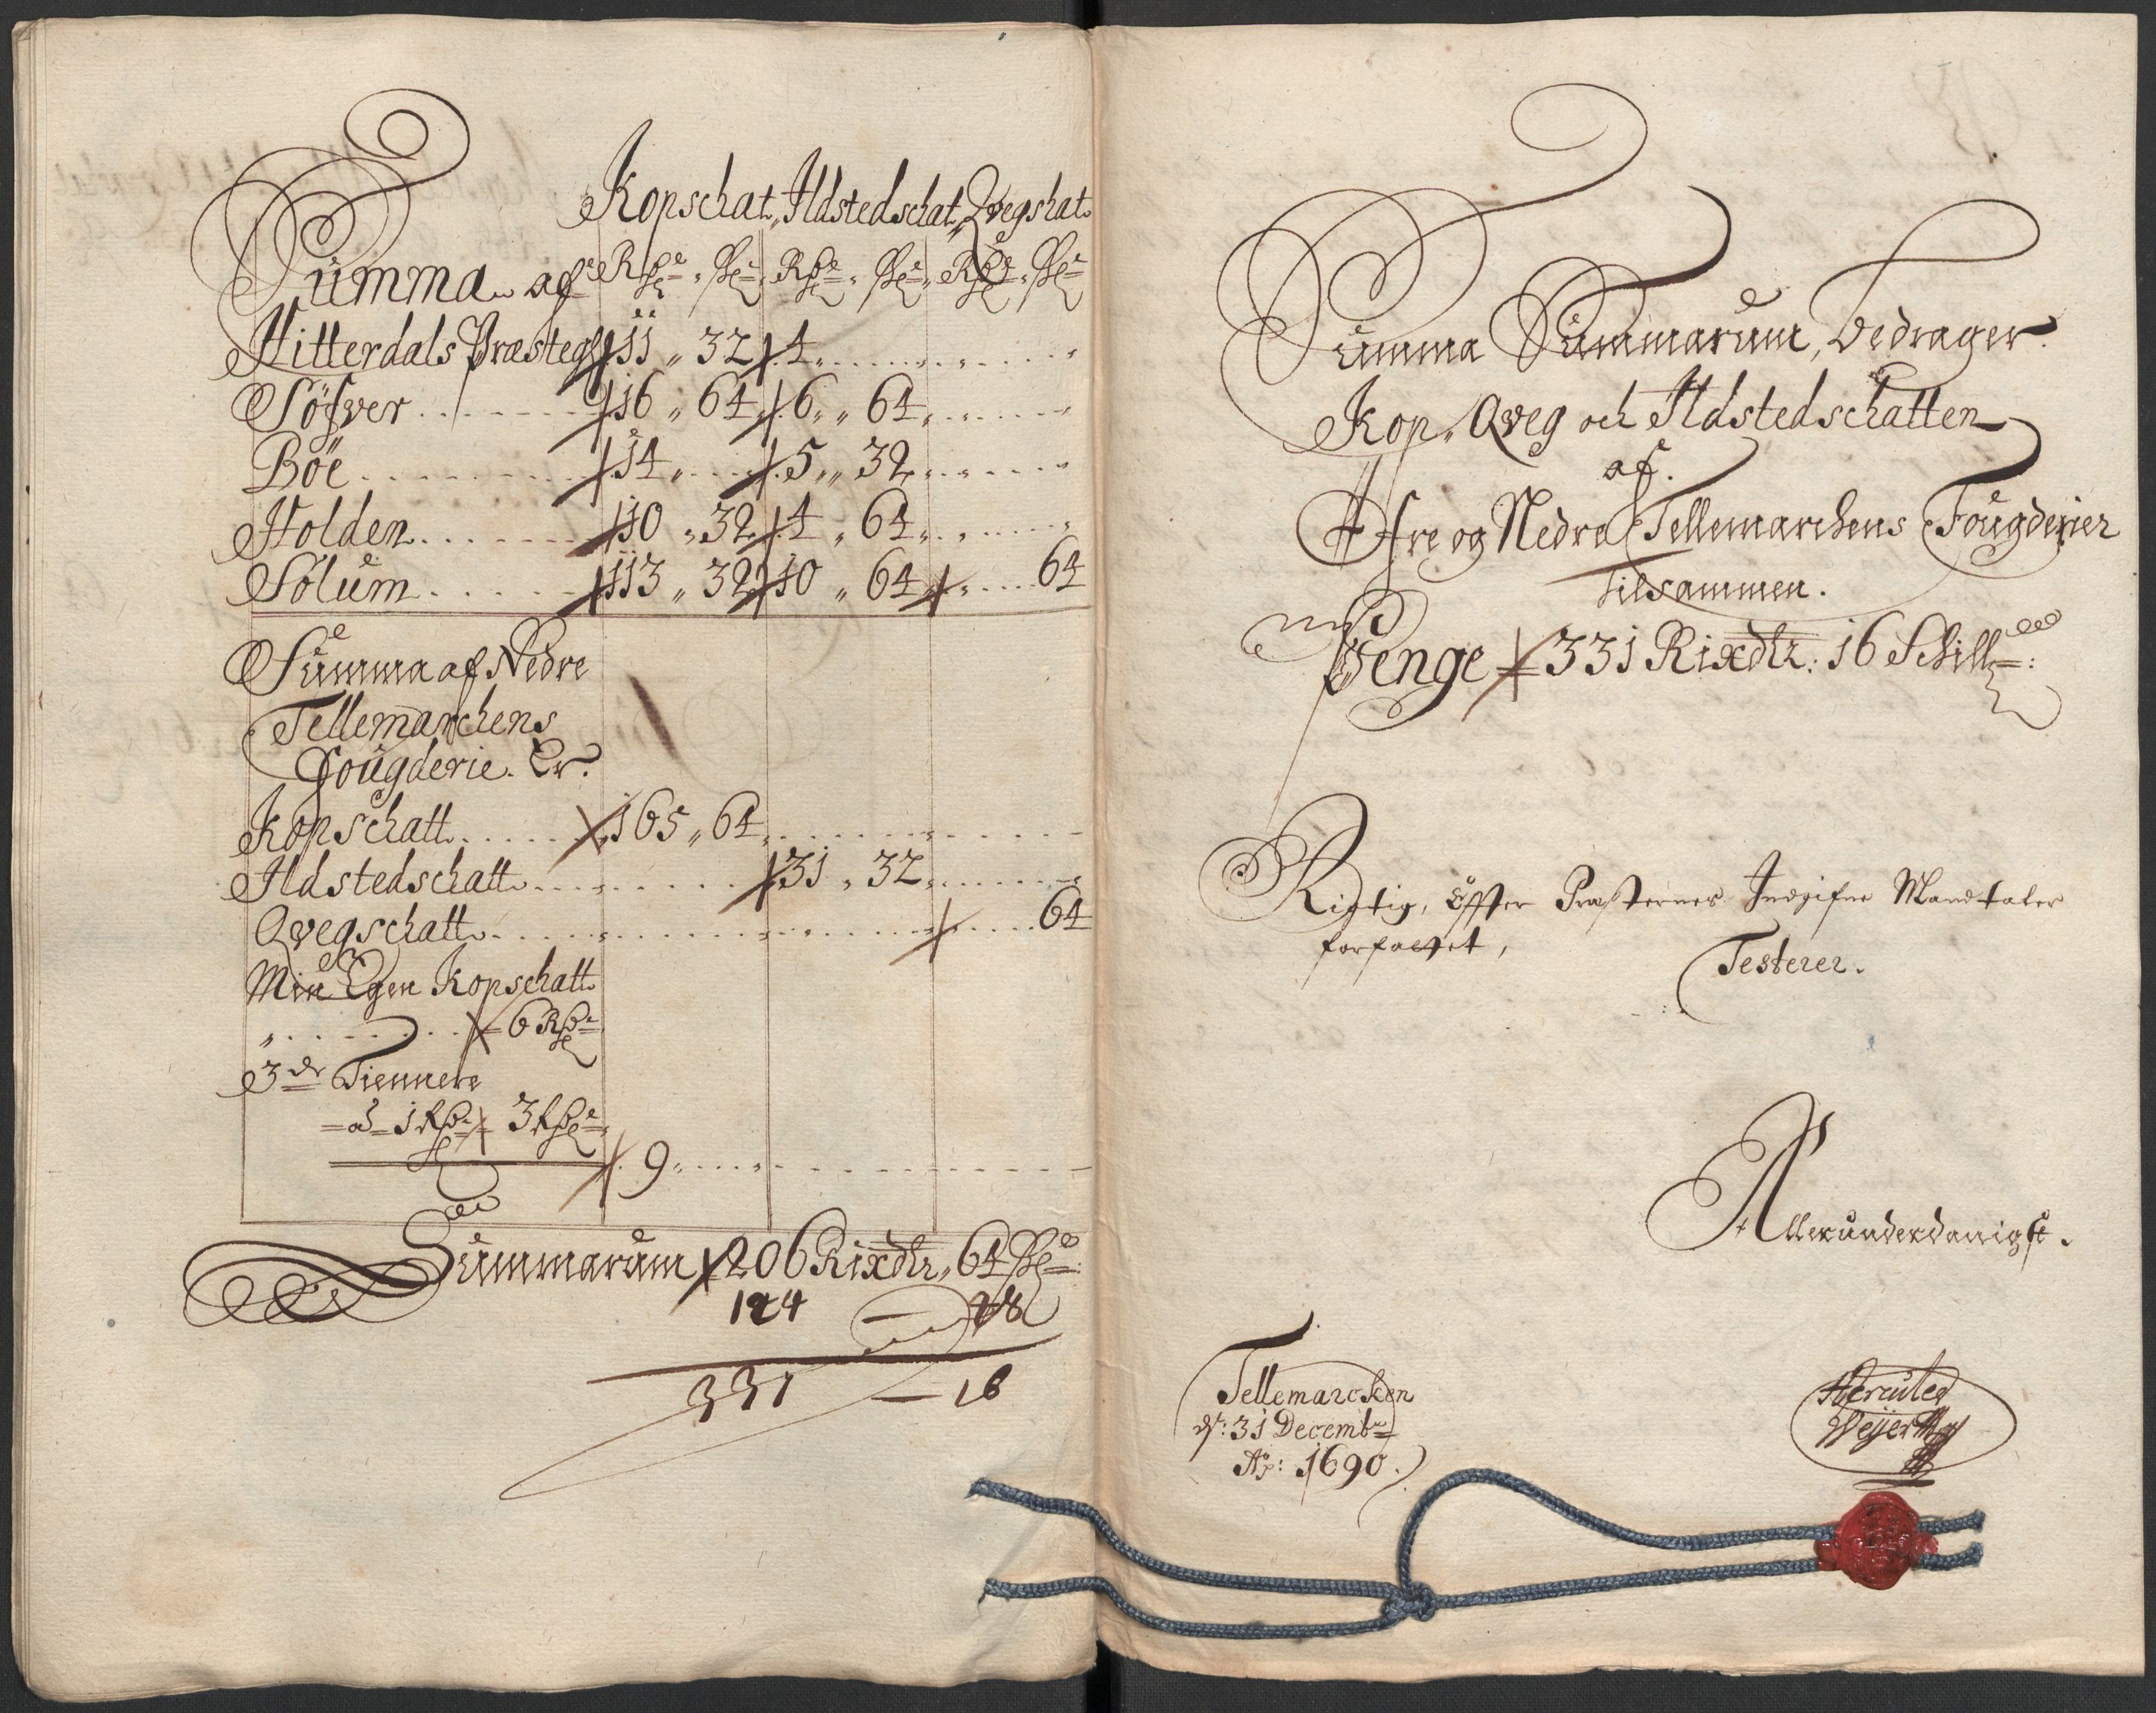 Kopschat, Ildstedschat, Qvegshat
Summa af Rdr ß Rdr ß Rdr ß
Hitterdals Præstegl 11 „ 32 4
Söfver 16 „ 64 6 „ 64
Böe 14 5 „ 32
Holden 10 „ 32 4 „ 64
Solum 113 „ 32 10 „ 64 64
Summa af Nedre
Tellemarchens
Fougderie. Er.
Kopschatt 165 „ 64
Ildstedschatt 31 „ 32
Qvegschatt 64
Min Egen Kopschatt
6 Rdr
3de Tiennere
a 1 Rdr 3 Rdr
9
Summarum 206 Rixdlr, 64 ß
124 — 48
331 — 16
Summa Summarum, Bedrager
Kop, Qveg och Ildstedschatten
af
Öfre og Nedre Tellemarchens Fougderier
tilsammen.
Penge 331 Rixdlr: 16 Schill:
Rigtig, Effter Præsternes Indgifne Mandtaler
forfattet,
Testerer.
Allerunderdanigst.
Tellemarcken
d: 31 Decembr
Ao: 1690.
Hercules
Weyer